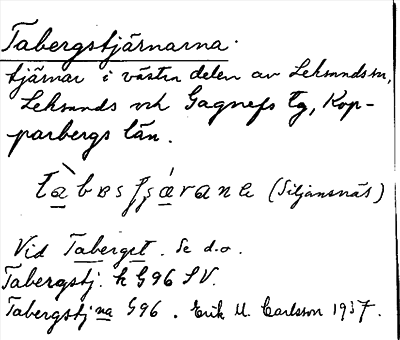 Tabergstjärnarna.
tjärnar i västra delen av Leksands sn,
Leksands och Gagnefs tg, Kop-
parbergs län.
(Siljansnäs)
Vid Taberget. Se d.o.
Tabergstj. k G96 SV.
Tabergstjna G96. Erik M. Carlsson 1937.